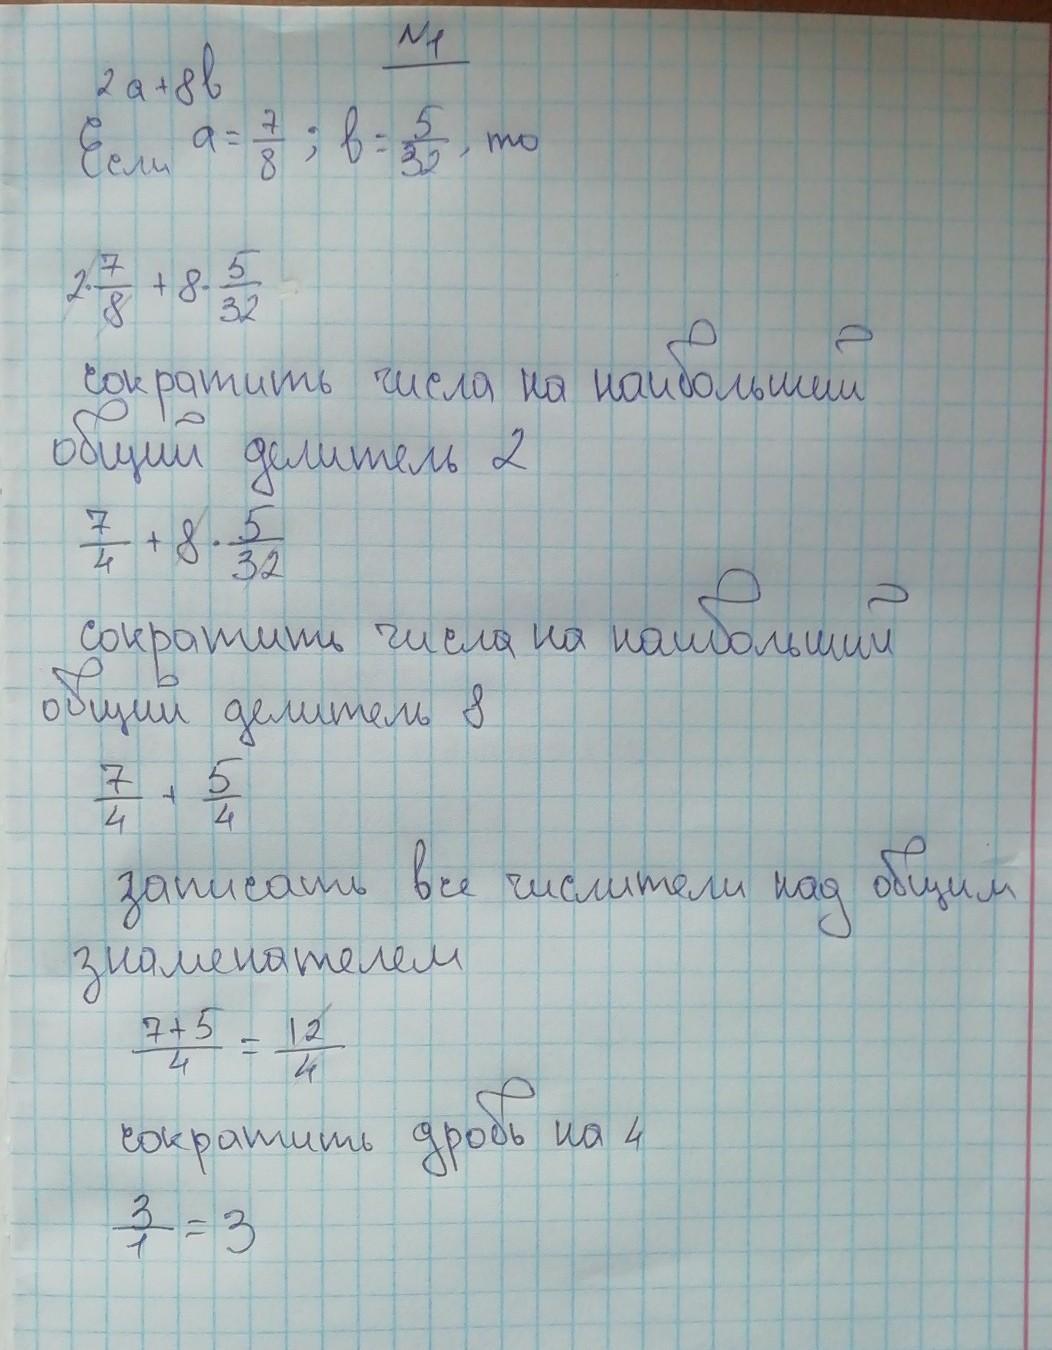 №1
2a+8b
Если a = 7/8 ; b = 5/32, то
2·7/8 + 8·5/32
сократить числа на наибольший
общий делитель 2
7/4 + 8·5/32
сократить числа на наибольший
общий делитель 8
7/4 + 5/4
записать все числители над общим
знаменателем
7+5/4 = 12/4
сократить дробь на 4
3/1 = 3